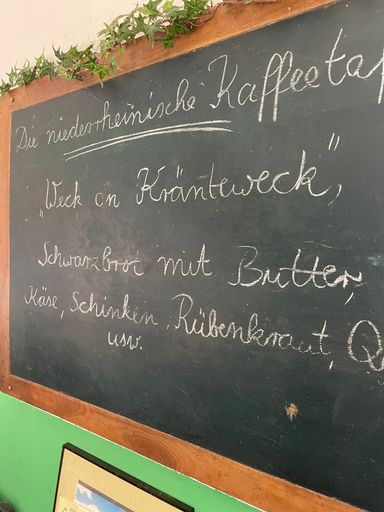 Die niederrheinische Kaffeeta
"Weck on Kränteweck",
Schwarzbrot mit Butter,
Käse, Schinken, Rübenkraut, Q
usw.